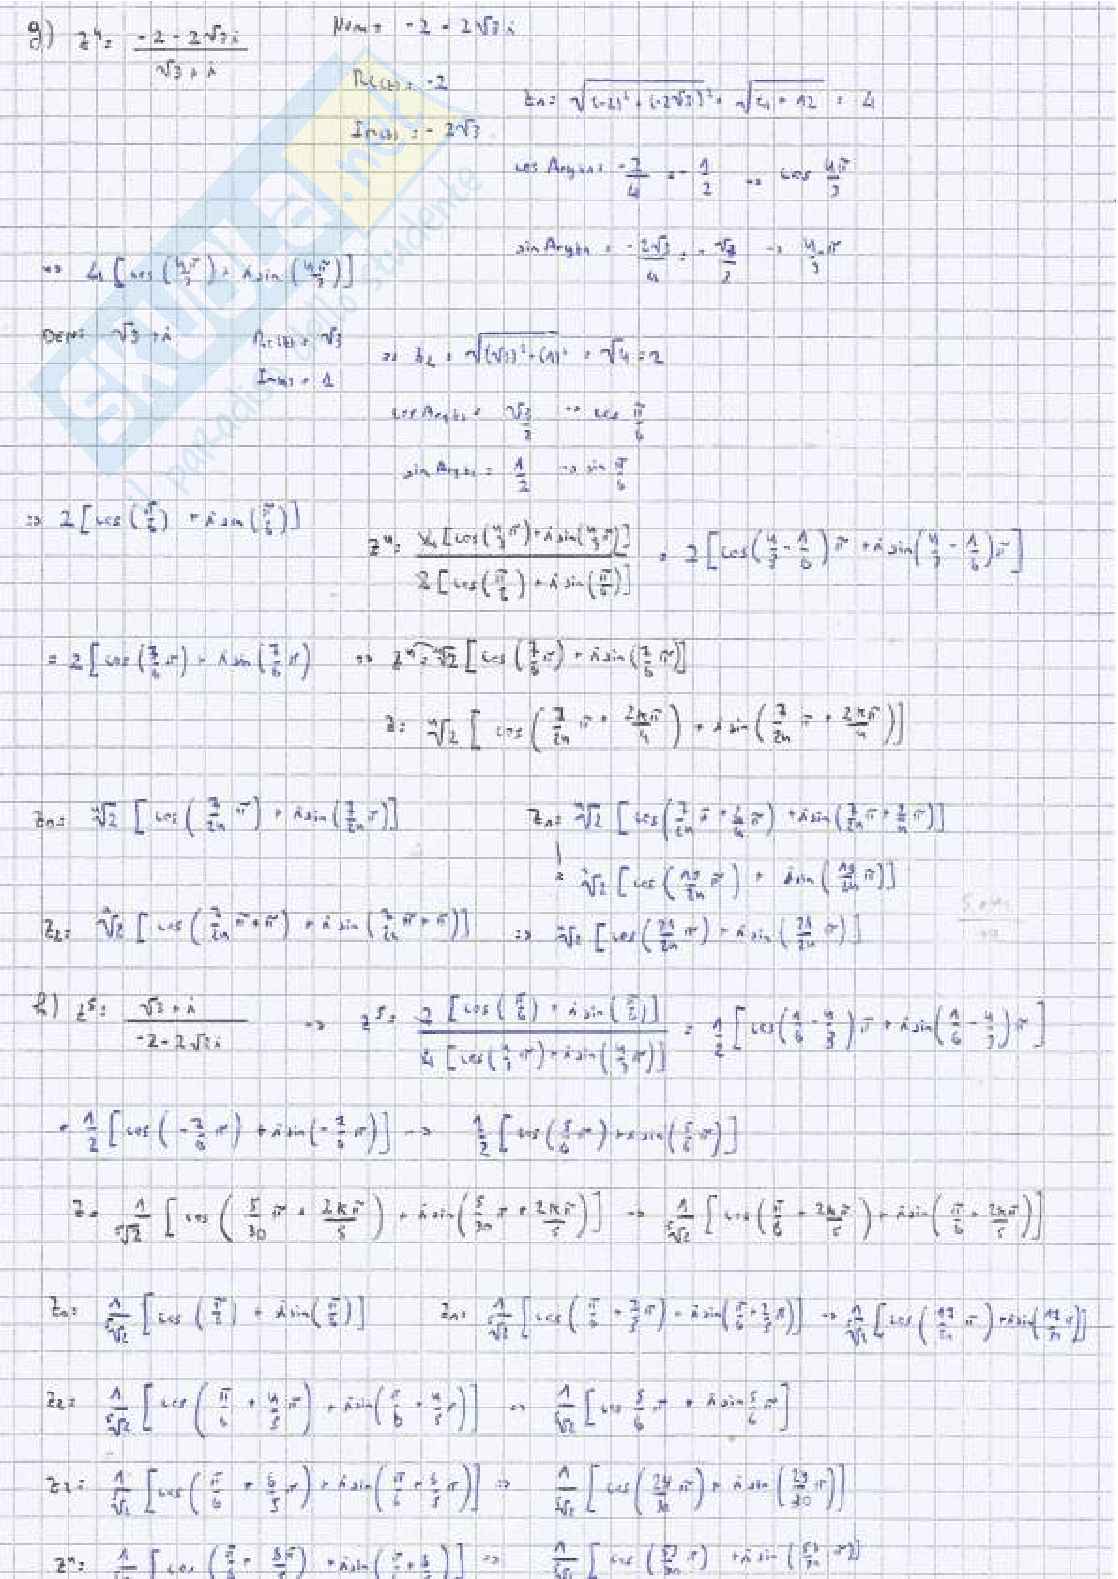 g) z⁴ = (-2 - 2√3 i)/(√3 + i) Num: -2 - 2√3 i
Re(z) = -2
Im(z) = -2√3
z₁ = √((-2)² + (-2√3)²) = √(4 + 12) = 4
cos Arg z₁ = -2/4 = -1/2 → cos 4π/3
sin Arg z₁ = -2√3/4 = -√3/2 → 4/3 π
⇒ 4 [cos(4π/3) + i sin(4π/3)]
DEN: √3 + i Re(z) = √3 ⇒ z₂ = √((√3)² + (1)²) = √4 = 2
Im(z) = 1
cos Arg z₂ = √3/2 → cos π/6
sin Arg z₂ = 1/2 → sin π/6
⇒ 2 [cos(π/6) + i sin(π/6)]
z⁴ = 4 [cos(4/3 π) + i sin(4/3 π)] / 2 [cos(π/6) + i sin(π/6)] = 2 [cos(4/3 - 1/6) π + i sin(4/3 - 1/6) π]
= 2 [cos(7/6 π) + i sin(7/6 π) ⇒ z⁴ = ⁴√2 [cos(7/6 π) + i sin(7/6 π)]
z = ⁴√2 [cos(7/24 π + 2kπ/4) + i sin(7/24 π + 2kπ/4)]
⁴√2 [cos(7/24 π) + i sin(7/24 π)] z₁ = ⁴√2 [cos(7/24 π + 2/4 π) + i sin(7/24 π + 2/4 π)]
⁴√2 [cos(19/24 π) + i sin(19/24 π)]
z₂ = ⁴√2 [cos(7/24 π + π) + i sin(7/24 π + π)] ⇒ ⁴√2 [cos(31/24 π) + i sin(31/24 π)]
h) z⁵ = (√3 + i)/(-2 - 2√3 i) → z⁵ = 2 [cos(π/6) + i sin(π/6)] / 4 [cos(4/3 π) + i sin(4/3 π)] = 1/2 [cos(1/6 - 4/3) π + i sin(1/6 - 4/3) π]
= 1/2 [cos(-7/6 π) + i sin(-7/6 π)] → 1/2 [cos(5/6 π) + i sin(5/6 π)]
z = 1/⁵√2 [cos(5/30 π + 2kπ/5) + i sin(5/30 π + 2kπ/5)] → 1/⁵√2 [cos(π/6 + 2kπ/5) + i sin(π/6 + 2kπ/5)]
1/⁵√2 [cos(π/6) + i sin(π/6)] z₁ = 1/⁵√2 [cos(π/6 + 2/5 π) + i sin(π/6 + 2/5 π)] → 1/⁵√2 [cos(17/30 π) + i sin(17/30 π)]
z₂ = 1/⁵√2 [cos(π/6 + 4/5 π) + i sin(π/6 + 4/5 π)] → 1/⁵√2 [cos 5/6 π + i sin 5/6 π]
1/⁵√2 [cos(π/6 + 6/5 π) + i sin(π/6 + 6/5 π)] ⇒ 1/⁵√2 [cos(29/30 π) + i sin(29/30 π)]
SKUOLA.net
il paradiso dello studente